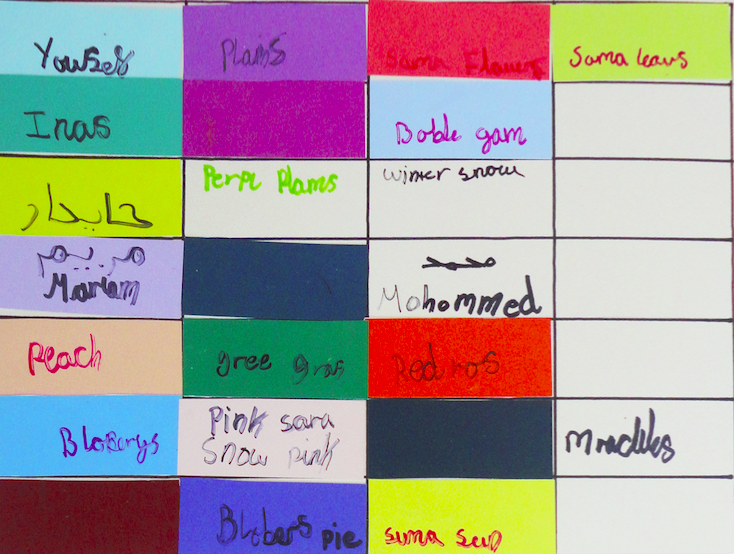 Yousef
Plams
Suma Flawers
Suma leavs
Inas
Boble gam
جايدار
Perpl Plams
winter snow
مريم
Mariam
محمد
Mohommed
Peach
gree gras
Red ros
Bloberys
Pink sara
Snow pink
Blobers pie
suma sun